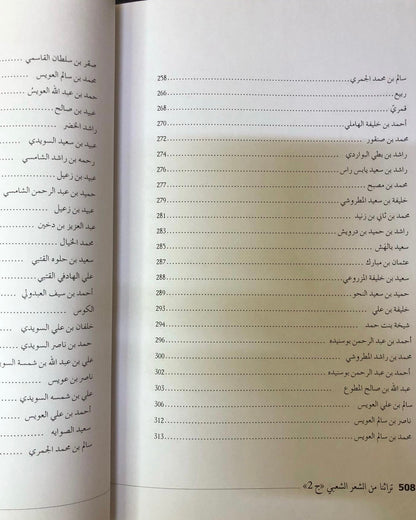 سالم بن محمد الجمري ........ 258
ربيع ........ 266
قمريّ ........ 268
أحمد بن خليفة الهاملي ........ 270
محمد بن صنقور ........ 272
راشد بن بطي البواردي ........ 274
راشد بن سعيد يابس راس ........ 276
محمد بن مصبح ........ 277
خليفة بن سعيد المطروشي ........ 279
محمد بن ثاني بن زنيد ........ 281
راشد بن حميد بن درويش ........ 284
سعيد بالهش ........ 285
عثمان بن مبارك ........ 287
سعيد بن خليفة المزروعي ........ 288
محمد بن سعيد النحو ........ 289
خليفة بن علي ........ 293
شيخة بنت حمد ........ 294
أحمد بن عبد الرحمن بوسنيده ........ 296
محمد بن راشد المطروشي ........ 300
أحمد بن عبد الرحمن بوسنيده ........ 302
عبد الله بن صالح المطوع ........ 303
سالم بن علي العويس ........ 306
ناصر بن سالم العويس ........ 312
محمد بن سالم العويس ........ 313
508 تراثنا من الشعر الشعبي «ج 2»
صقر بن سلطان القاسمي
محمد بن سالم العويس
حمد بن عبد الله العويس
عبيد بن صالح
راشد الخضر
عبيد بن سعيد السويدي
رحمه بن راشد الشامسي
عبيد بن زعيل
حميد بن عبد الرحمن الشامسي
عبيد بن زعيل
عبد العزيز بن دخين
محمد الخيال
سعيد بن حلوه القتبي
علي الهادفي القتبي
أحمد بن سيف العبدولي
الكوس
خلفان بن علي السويدي
حمد بن ناصر السويدي
علي بن عبد الله بن شمسة السويدي
ناصر بن عويس
علي بن شمسه السويدي
أحمد بن علي العويس
سعيد الصوايه
سالم بن محمد الجمري